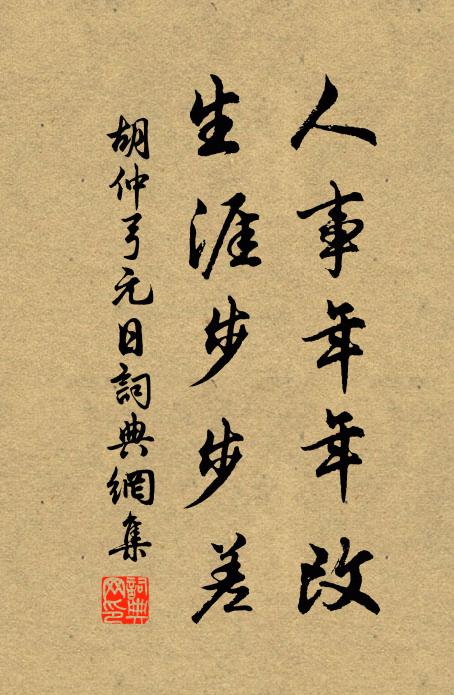 人事年年改
生涯步步差
胡仲弓元日詞典網集
詞典網印